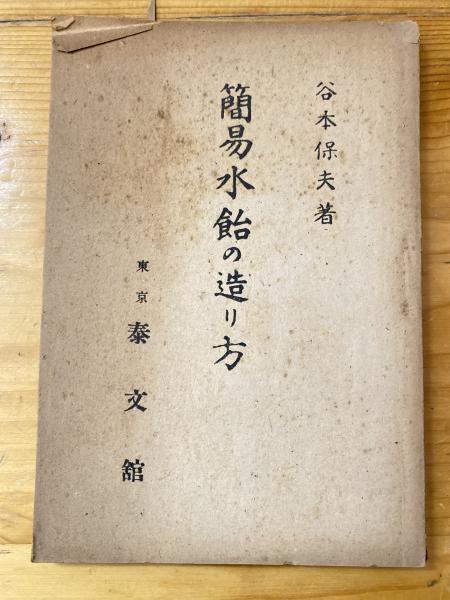 谷本保夫著
簡易水飴の造り方
東京
泰文舘